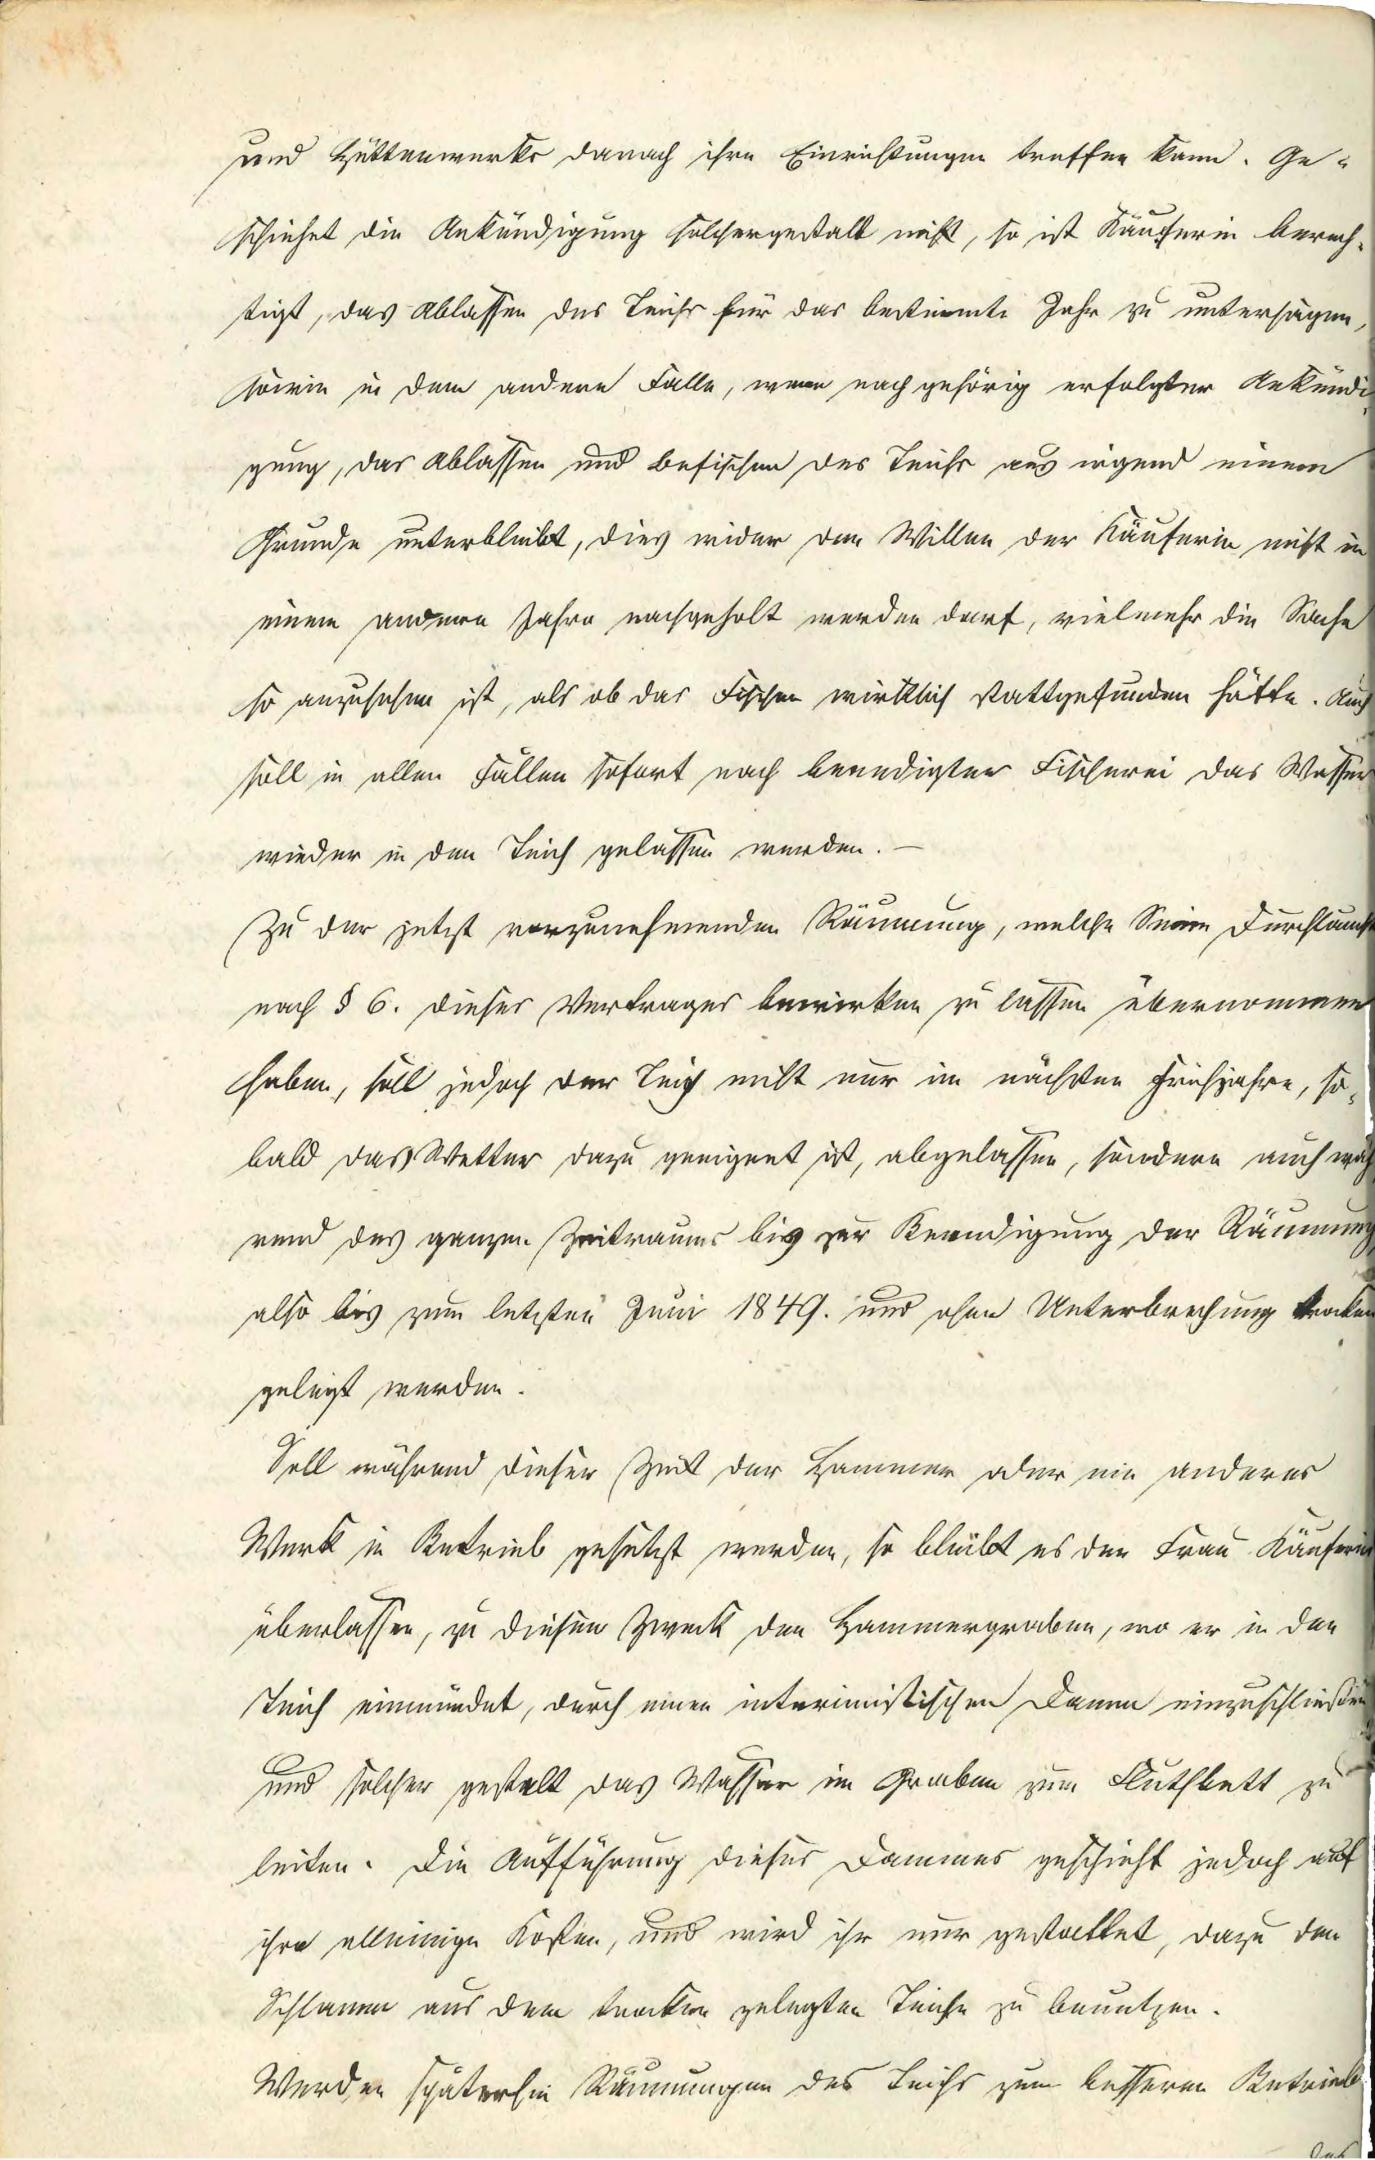 und Hüttenwerks danach ihre Einrichtungen treffen kann. Ge-
schiehet die Ankündigung solchergestalt nicht, so ist Käuferin berech-
tigt, das Ablassen des Teichs für das bestimmte Jahr zu untersagen,
sowie in dem andern Falle, wenn nach gehörig erfolgter Ankündi-
gung, das Ablassen und Befischen des Teichs aus irgend einem
Grunde unterbleibt, dies wider den Willen der Käuferin nicht in
einem andern Jahre nachgeholt werden darf, vielmehr die Sache
so anzusehen ist, als ob das Fischen wirklich stattgefunden hätte. Auch
soll in allen Fällen sofort nach beendigter Fischerei das Wasser
wieder in den Teich gelassen werden. –
Zu der jetzt vorzunehmenden Räumung, welche Seine Durchlaucht
nach § 6. dieses Vertrages bewirken zu lassen übernommen
haben, soll jedoch der Teich nicht nur im nächsten Frühjahre, so-
bald das Wetter dazu geeignet ist, abgelassen, sondern auch wäh
rend des ganzen Zeitraums bis zur Beendigung der Räumung
also bis zum letzten Juni 1849. und ohne Unterbrechung trocken
gelegt werden.
Soll während dieser Zeit der Hammer oder ein anderes
Werk in Betrieb gesetzt werden, so bleibt es der Frau Käuferin
überlassen, zu diesem Zweck den Hammergraben, wo er in den
Teich einmündet, durch einen interimistischen Damm einzuschließen
und solcher gestalt das Wasser im Graben zum Fluthbett zu
leiten. Die Aufführung dieses Dammes geschieht jedoch auf
ihre alleinige Kosten, und wird ihr nur gestattet, dazu den
Schlamm aus dem trocken gelegten Teiche zu benutzen.
Werden späterhin Räumungen des Teichs zum besseren Betrieb
des